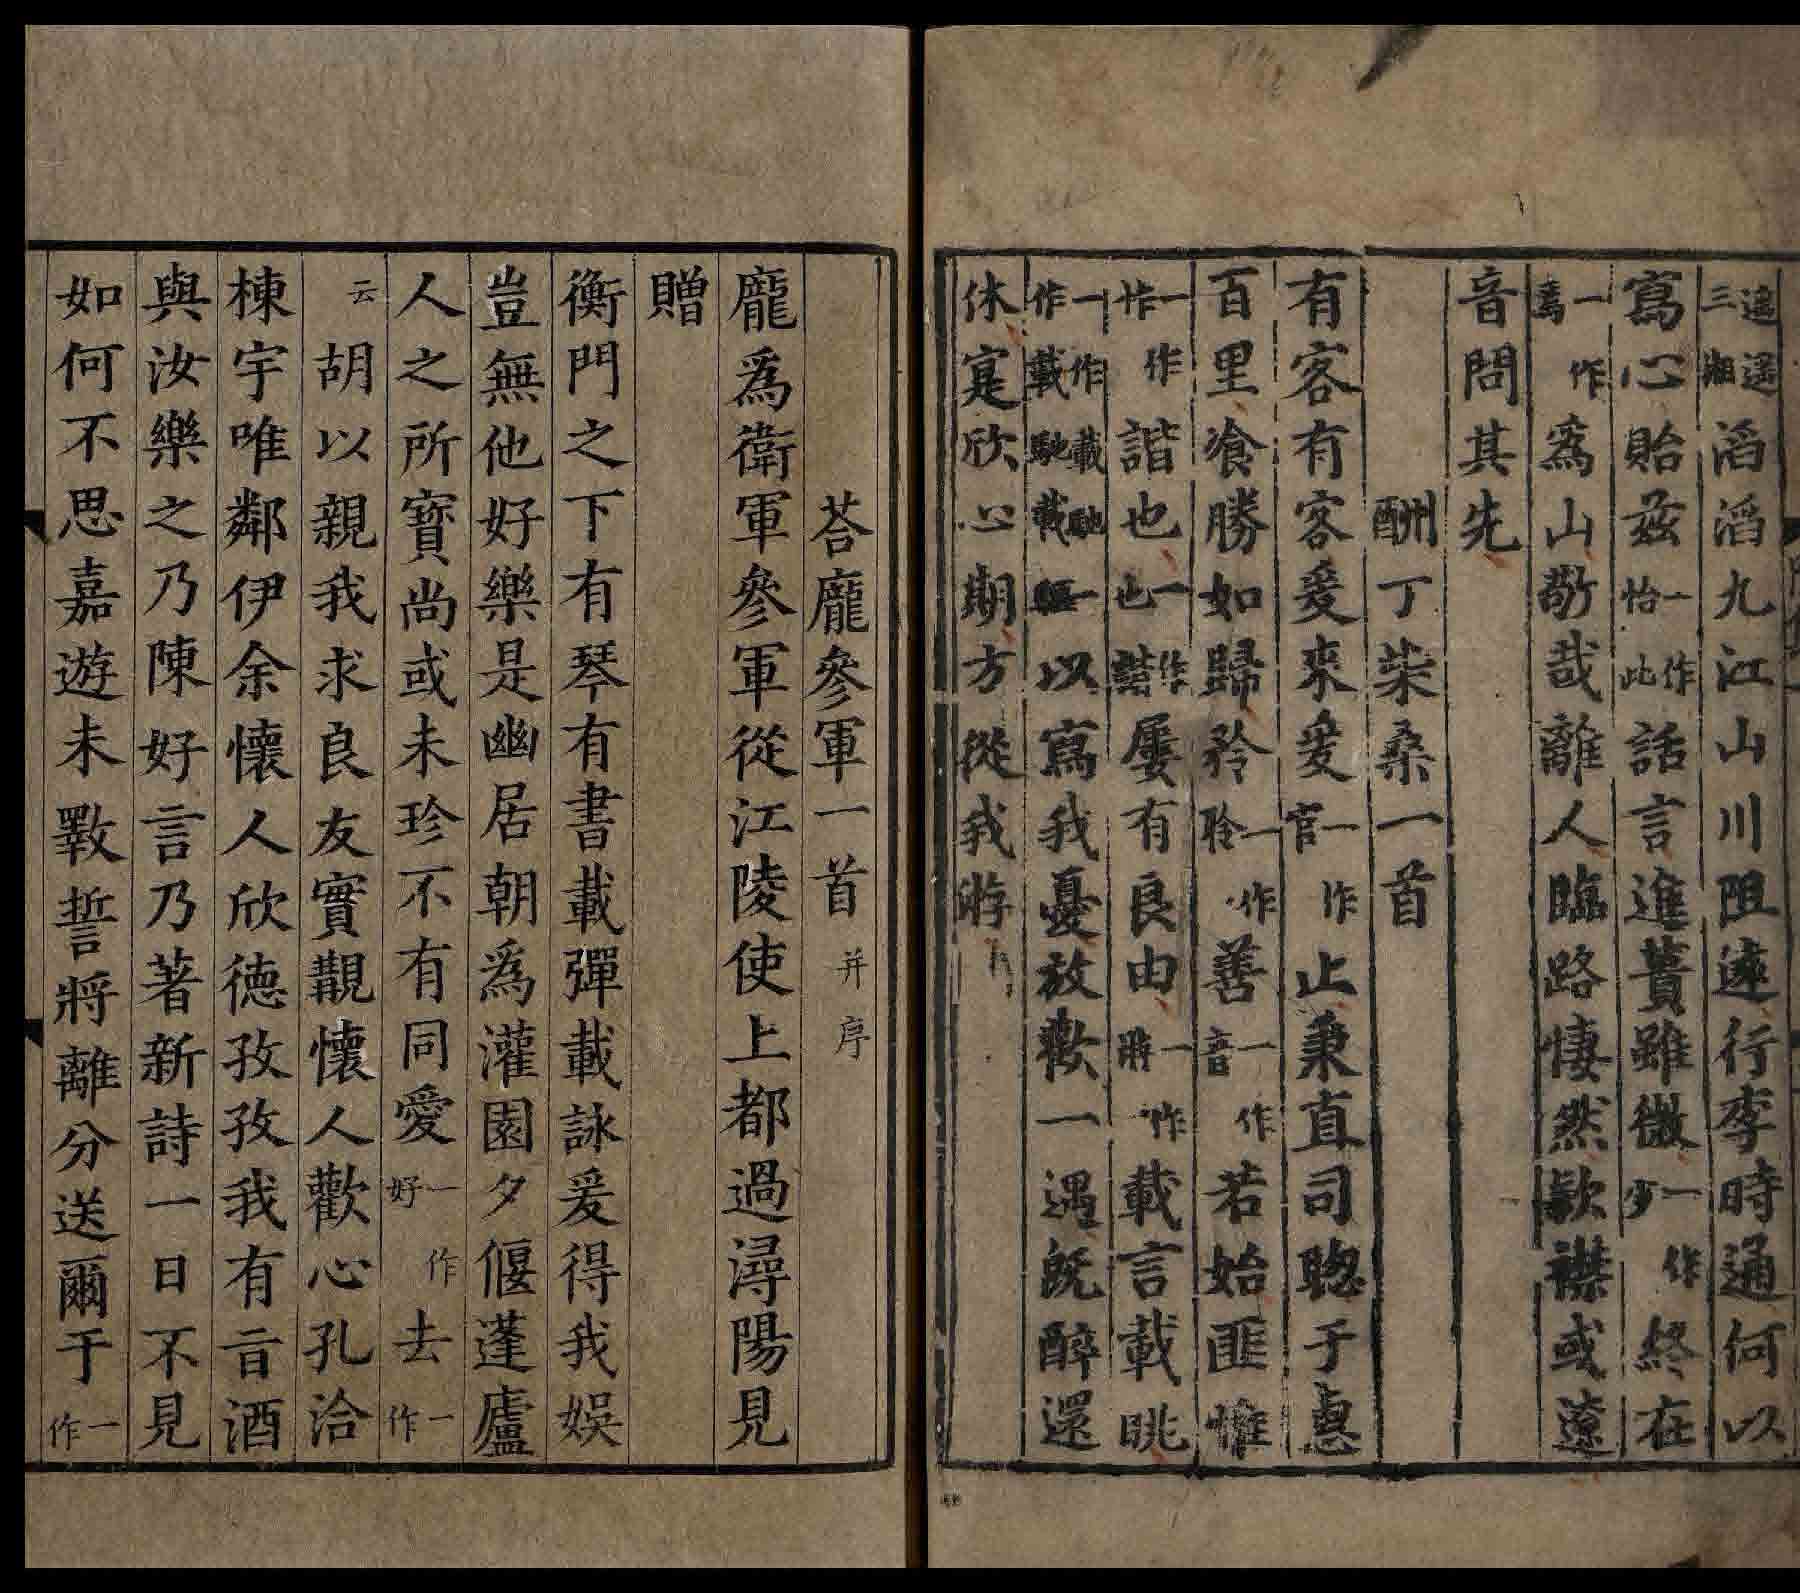 遙遙三湘滔滔九江山川阻遠行李時通何以
寫心貽茲一作怡此話言進蕢雖微一作少終在
一作焉爲山敬哉離人臨路悽然款襟或遼
音問其先
酬丁柴桑一首
有客有客爰來爰一作官止秉直司聰于惠
百里飡勝如歸矜一作聆善一作音若始匪惟
一作怍諧也一作也諧屢有良由一作將載言載眺
一作載馳一作載馳載驅以寫我憂放歡一遇既醉還
休寔欣心期方從我游
荅龐參軍一首并序
龐爲衛軍參軍從江陵使上都過潯陽見
贈
衡門之下有琴有書載彈載詠爰得我娛
豈無他好樂是幽居朝爲灌園夕偃蓬廬
人之所寶尚或未珍不有同愛一作好去一作
云胡以親我求良友實覯懷人歡心孔洽
棟宇唯鄰伊余懷人欣德孜孜我有旨酒
與汝樂之乃陳好言乃著新詩一日不見
如何不思嘉遊未斁誓將離分送爾于一作